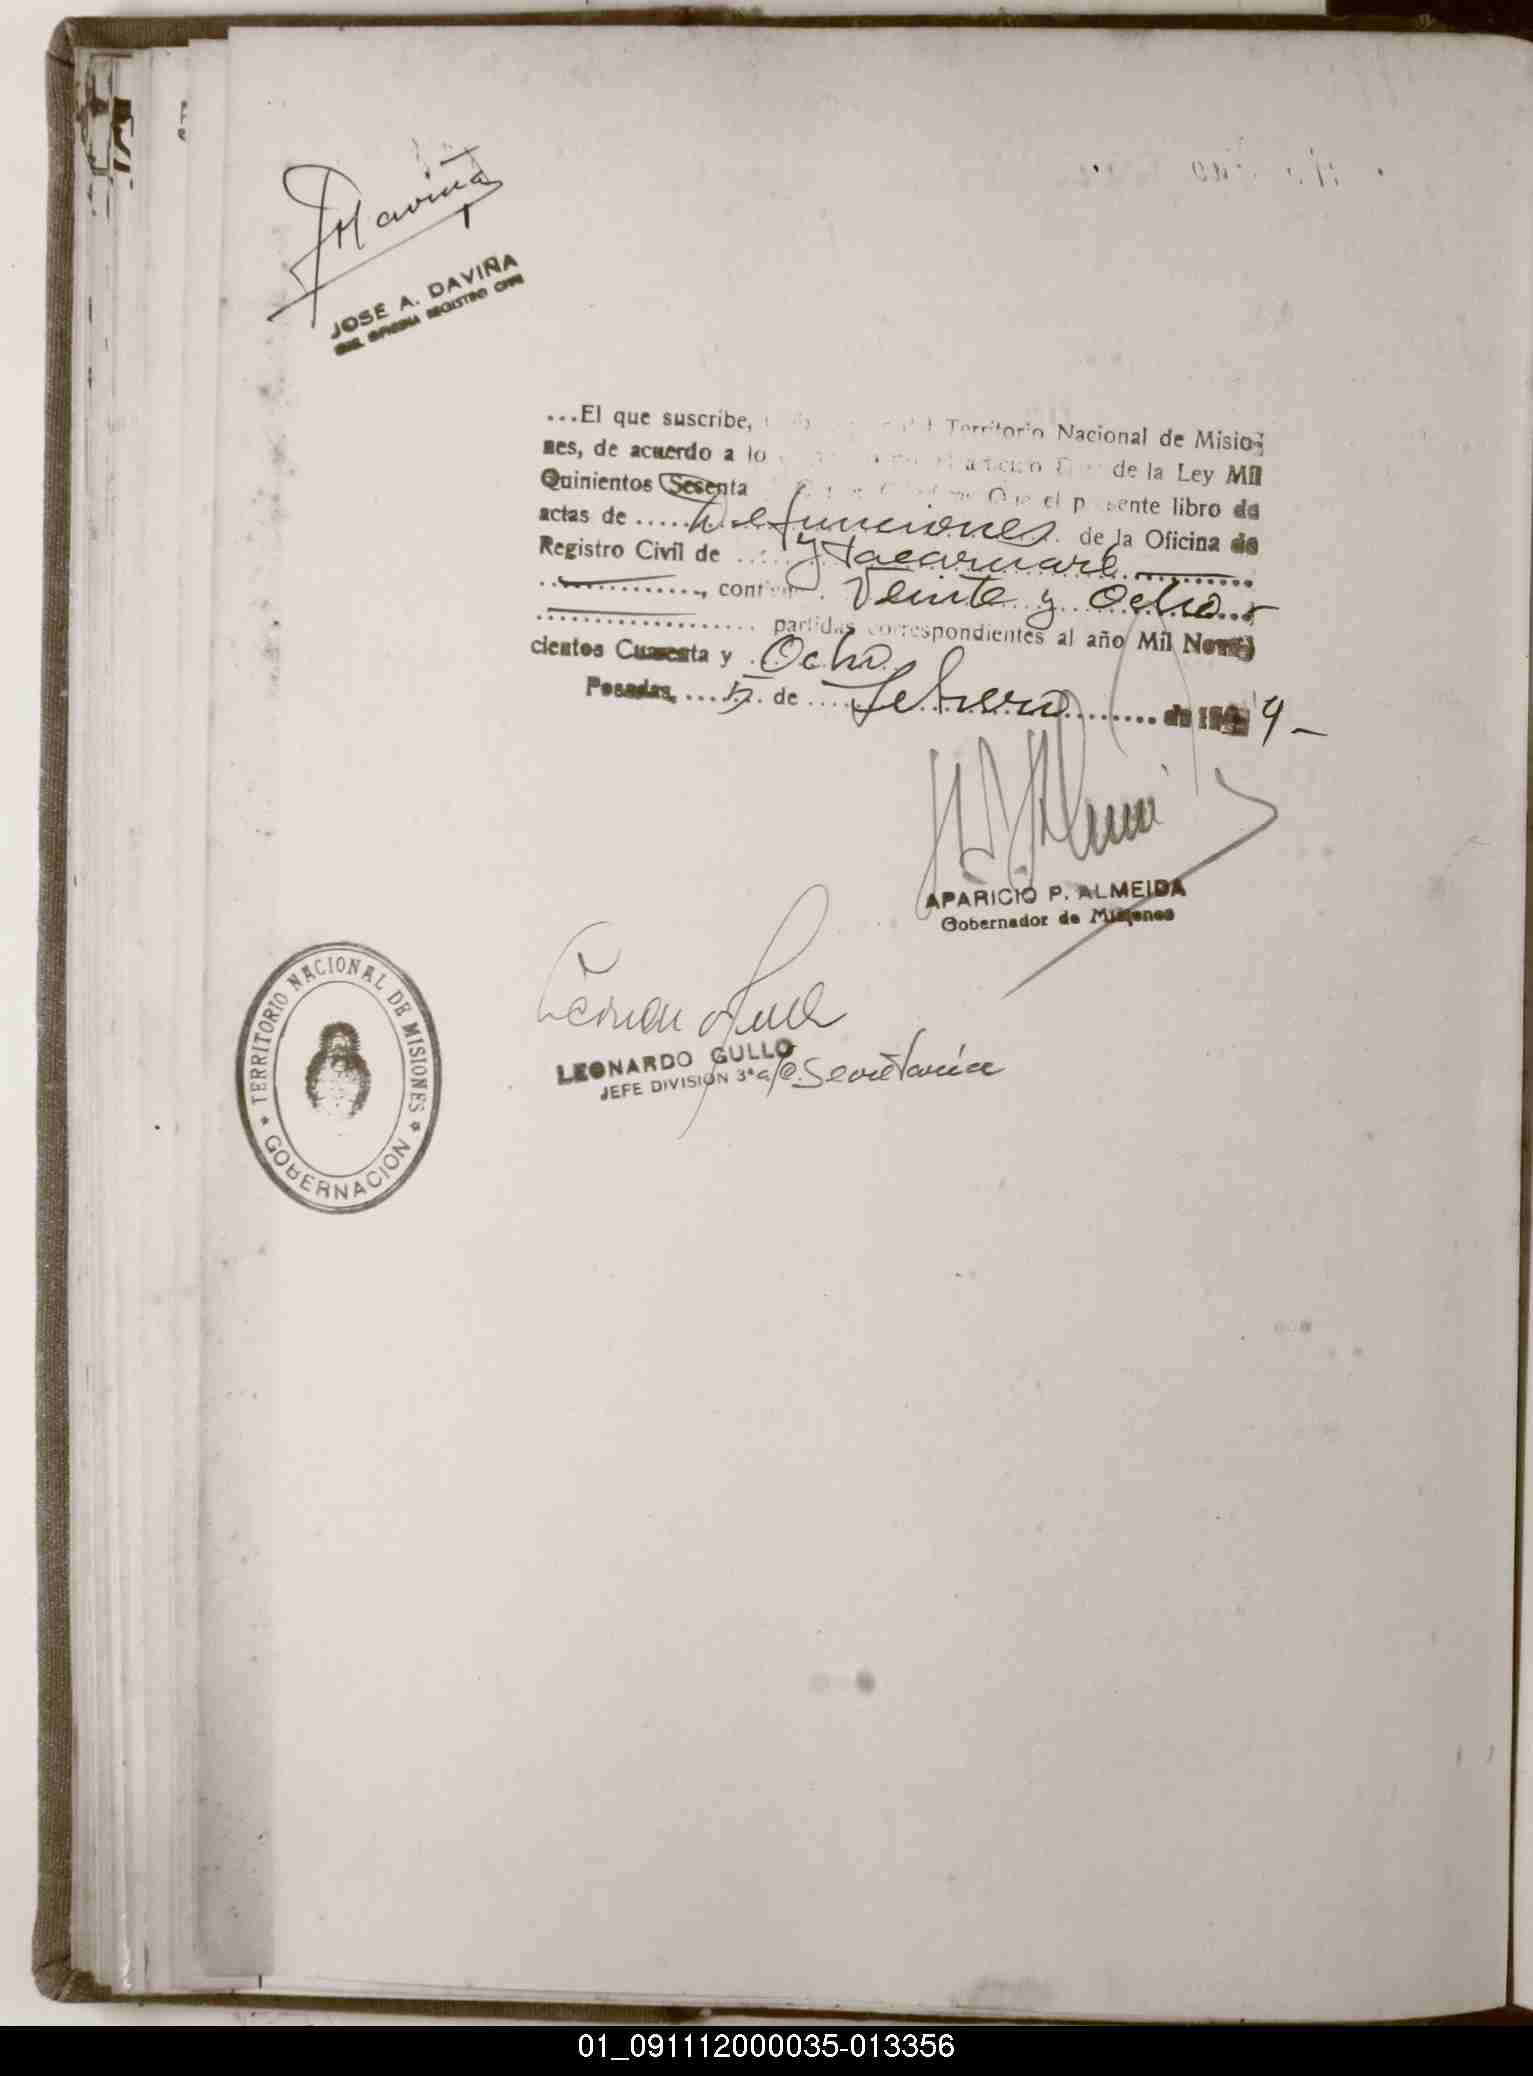 Daviña
JOSÉ A. DAVIÑA
OFICINA REGISTRO CIVIL
...El que suscribe, Territorio Nacional de Misio-
nes, de acuerdo a lo de la Ley Mil
Quinientos Sesenta Que el presente libro de
actas de ..... Defunciones de la Oficina de
Registro Civil de ... Ytacaruaré
, contiene Veinte y Ocho
partidas correspondientes al año Mil Nove-
cientos Cuarenta y Ocho
Posadas, .... 5 de .... Febrero ......... de 194 9-
APARICIO P. ALMEIDA
Gobernador de Misiones
LEONARDO GULLO
JEFE DIVISIÓN 3ª a/c. Secretaría
TERRITORIO NACIONAL DE MISIONES
GOBERNACION
01_091112000035-013356